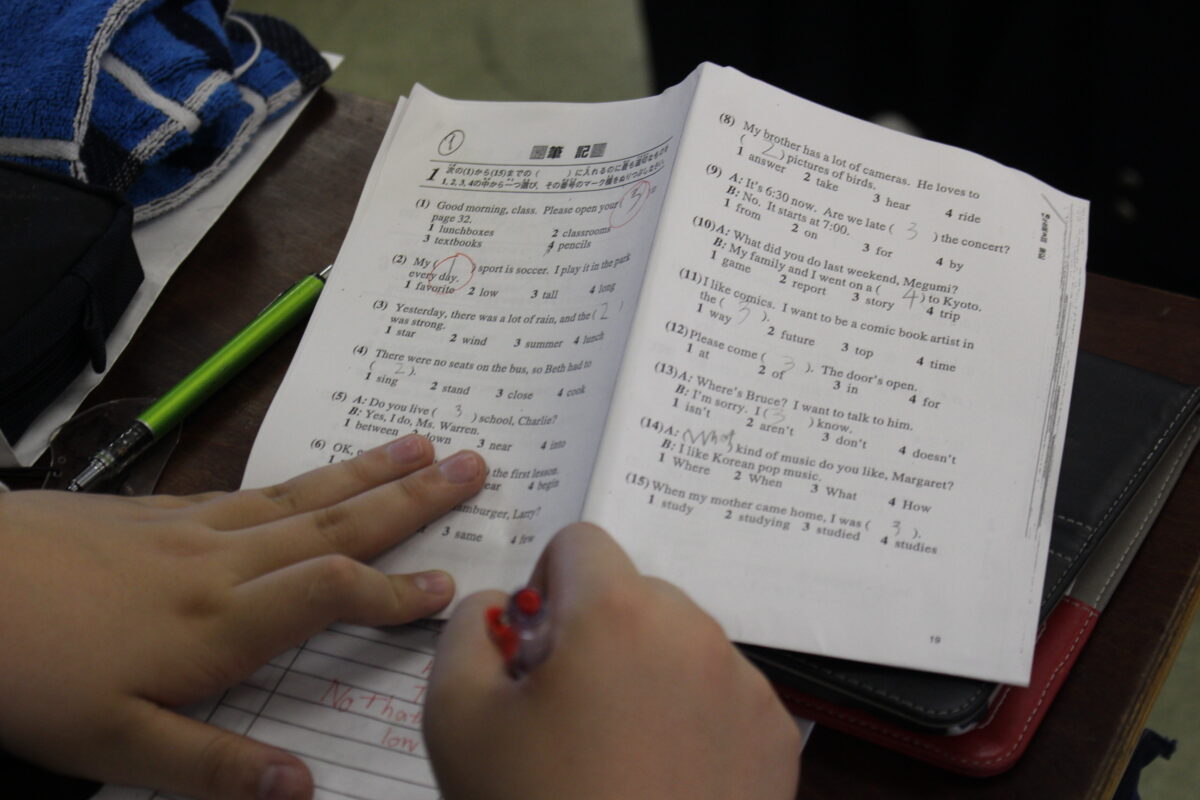 1
筆 記
1 次の(1)から(15)までの( )に入れるのに最も適切なものを
1, 2, 3, 4の中から一つ選び、その番号のマーク欄をぬりつぶしなさい。
(1) Good morning, class. Please open your ( 3
page 32.
1 lunchboxes 2 classrooms
3 textbooks 4 pencils
(2) My ( 1 ) sport is soccer. I play it in the park
every day.
1 favorite 2 low 3 tall 4 long
(3) Yesterday, there was a lot of rain, and the ( 2 )
was strong.
1 star 2 wind 3 summer 4 lunch
(4) There were no seats on the bus, so Beth had to
( 2 ).
1 sing 2 stand 3 close 4 cook
(5) A: Do you live ( 3 ) school, Charlie?
B: Yes, I do, Ms. Warren.
1 between 2 down 3 near 4 into
(6) OK,
the first lesson.
1 4 begin
hamburger, Larry?
3 same 4 few
(8) My brother has a lot of cameras. He loves to
( 2 ) pictures of birds.
1 answer 2 take 3 hear 4 ride
(9) A: It's 6:30 now. Are we late ( 3 ) the concert?
B: No. It starts at 7:00.
1 from 2 on 3 for 4 by
(10) A: What did you do last weekend, Megumi?
B: My family and I went on a ( 4 ) to Kyoto.
1 game 2 report 3 story 4 trip
(11) I like comics. I want to be a comic book artist in
the ( ).
1 way 2 future 3 top 4 time
(12) Please come ( 3 ). The door's open.
1 at 2 of 3 in 4 for
(13) A: Where's Bruce? I want to talk to him.
B: I'm sorry. I ( 3 ) know.
1 isn't 2 aren't 3 don't 4 doesn't
(14) A: (What) kind of music do you like, Margaret?
B: I like Korean pop music.
1 Where 2 When 3 What 4 How
(15) When my mother came home, I was ( 3 ).
1 study 2 studying 3 studied 4 studies
19
No that